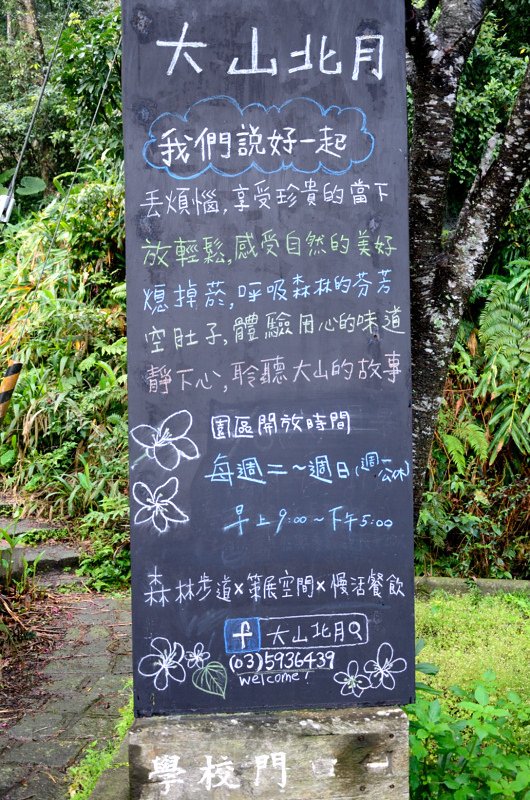 大山北月
我們說好一起
丟煩惱,享受珍貴的當下
放輕鬆,感受自然的美好
熄掉菸,呼吸森林的芬芳
空肚子,體驗用心的味道
靜下心,聆聽大山的故事
園區開放時間
每週二～週日(週一公休)
早上9:00～下午5:00
森林步道×策展空間×慢活餐飲
f 大山北月
(03)5936439
welcome!
學校門口